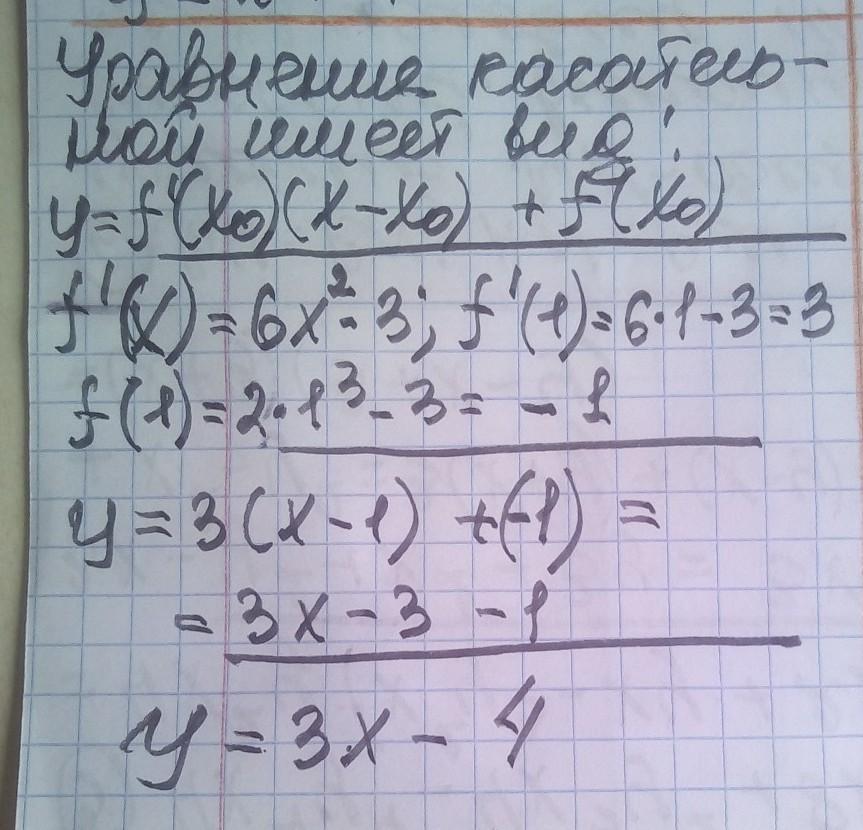 Уравнение касатель-
ной имеет вид:
y=f'(x₀)(x-x₀) + f(x₀)
f'(x)=6x²-3; f'(1)=6·1-3=3
f(1)=2·1³-3= -1
y=3(x-1) +(-1) =
= 3x-3 -1
y=3x-4